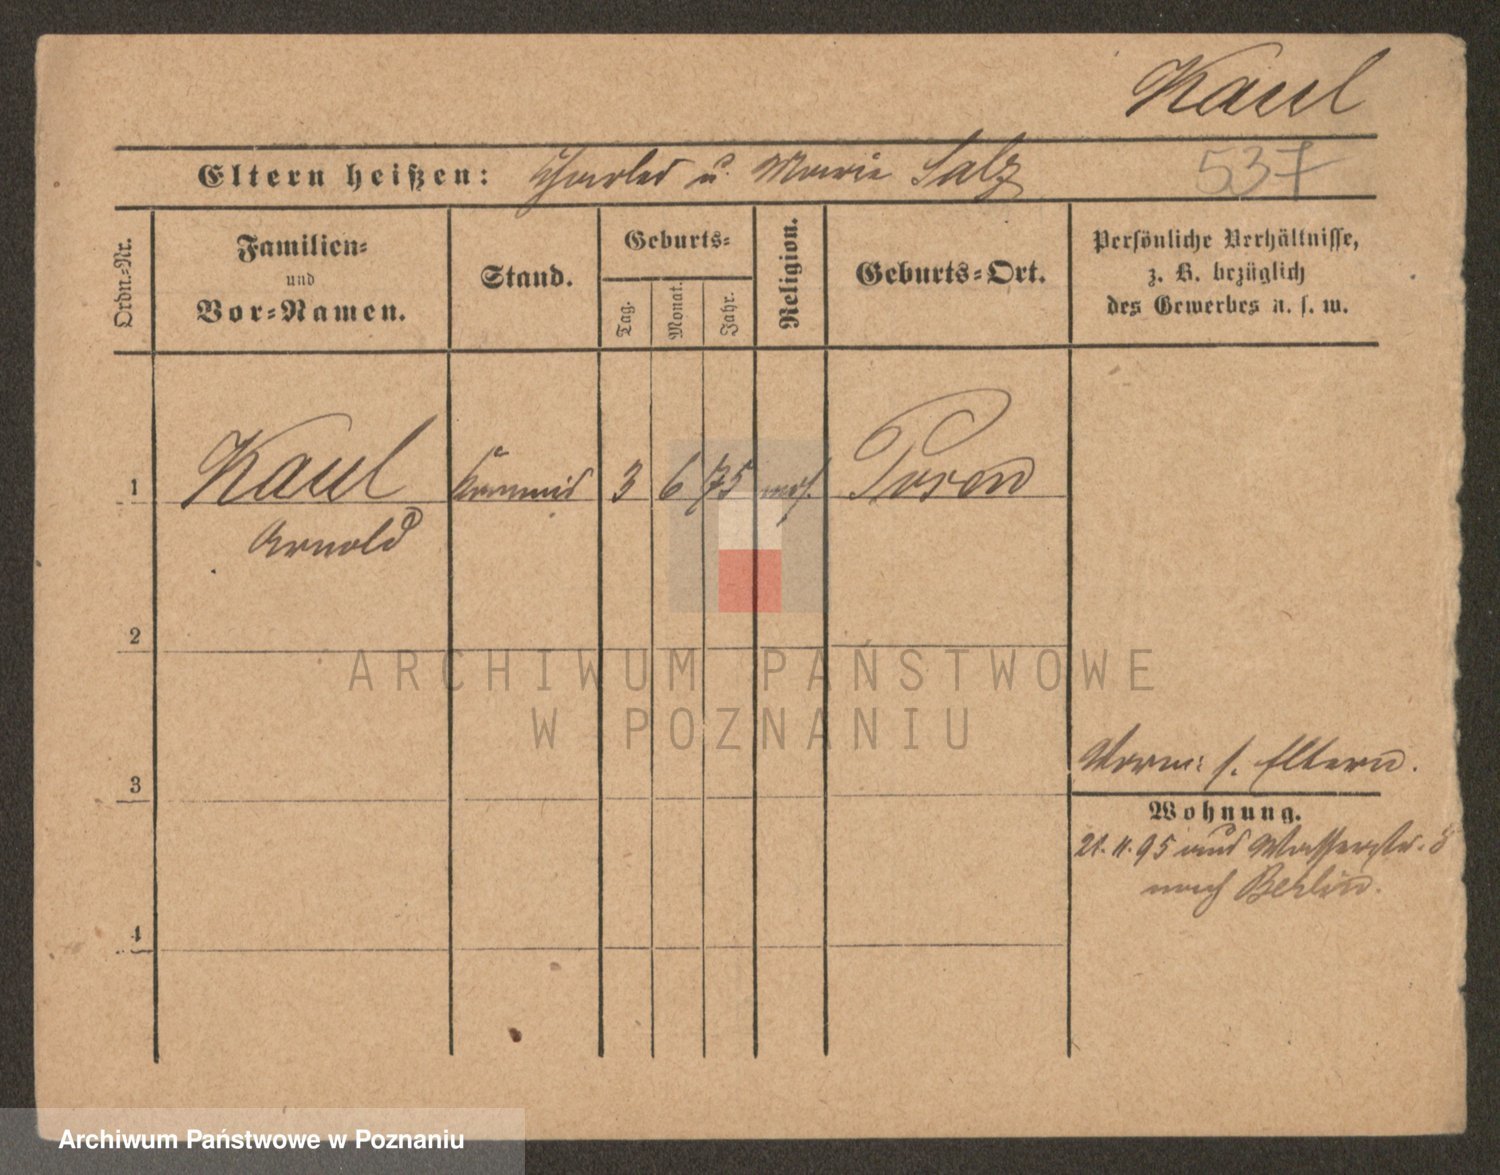 Kaul
Eltern heißen: Charles u. Marie Salz
537
Ordn.-Nr.
Familien-
und
Vor-Namen.
Stand.
Geburts-
Tag.
Monat.
Jahr.
Religion.
Geburts-Ort.
Persönliche Verhältnisse,
z. B. bezüglich
des Gewerbes u. s. w.
1 Kaul Kommis 3 6 75 mos. Posen
Arnold
2
ARCHIWUM PAŃSTWOWE
W POZNANIU
3
Vorm: s. Eltern.
Wohnung.
21.11.95 aus Wasserstr. 8
nach Berlin.
4
Archiwum Państwowe w Poznaniu